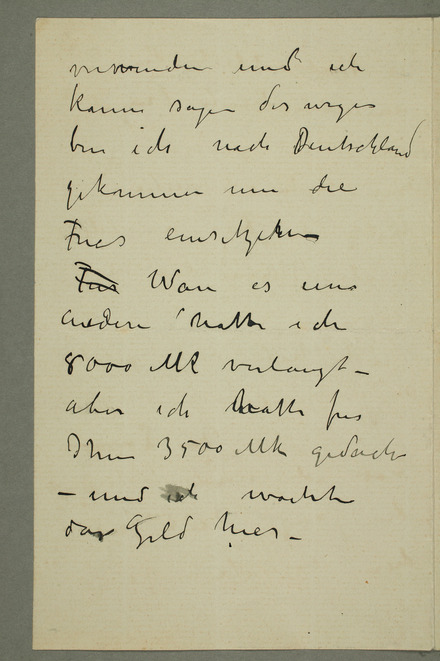 und ich
kann sagen des wegen
bin ich nach Deutschland
gekommen um die
Fries einsetzen
Wäre es ein
andere hatte ich
8000 Mk verlangt –
aber ich hatte für
Ihnen 3500 Mk gedacht
– und ich mochte
das Geld hier –